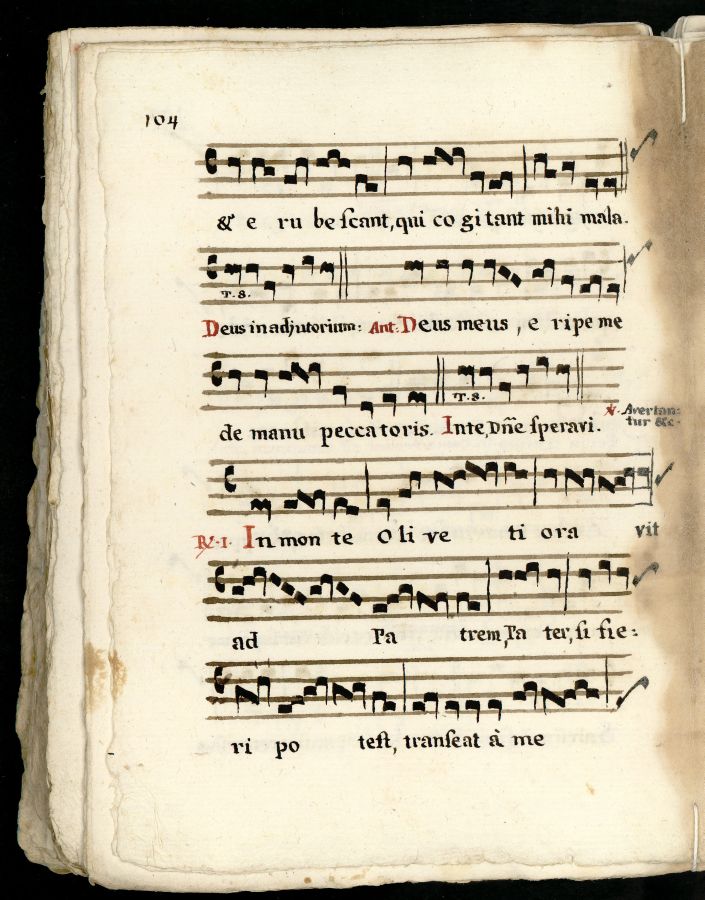 104
& e ru be ſcant, qui co gi tant mihi mala.
T. 8.
Deus in adjutorium: Ant: Deus meus, e ripe me
T. 8.
de manu pecca toris. In te, Dñe ſperavi. ℣. Avertan:
tur &c.
℟. 1. In mon te O li ve ti ora vit
ad Pa trem, Pa ter, ſi fie:
ri po teſt, tranſeat à me